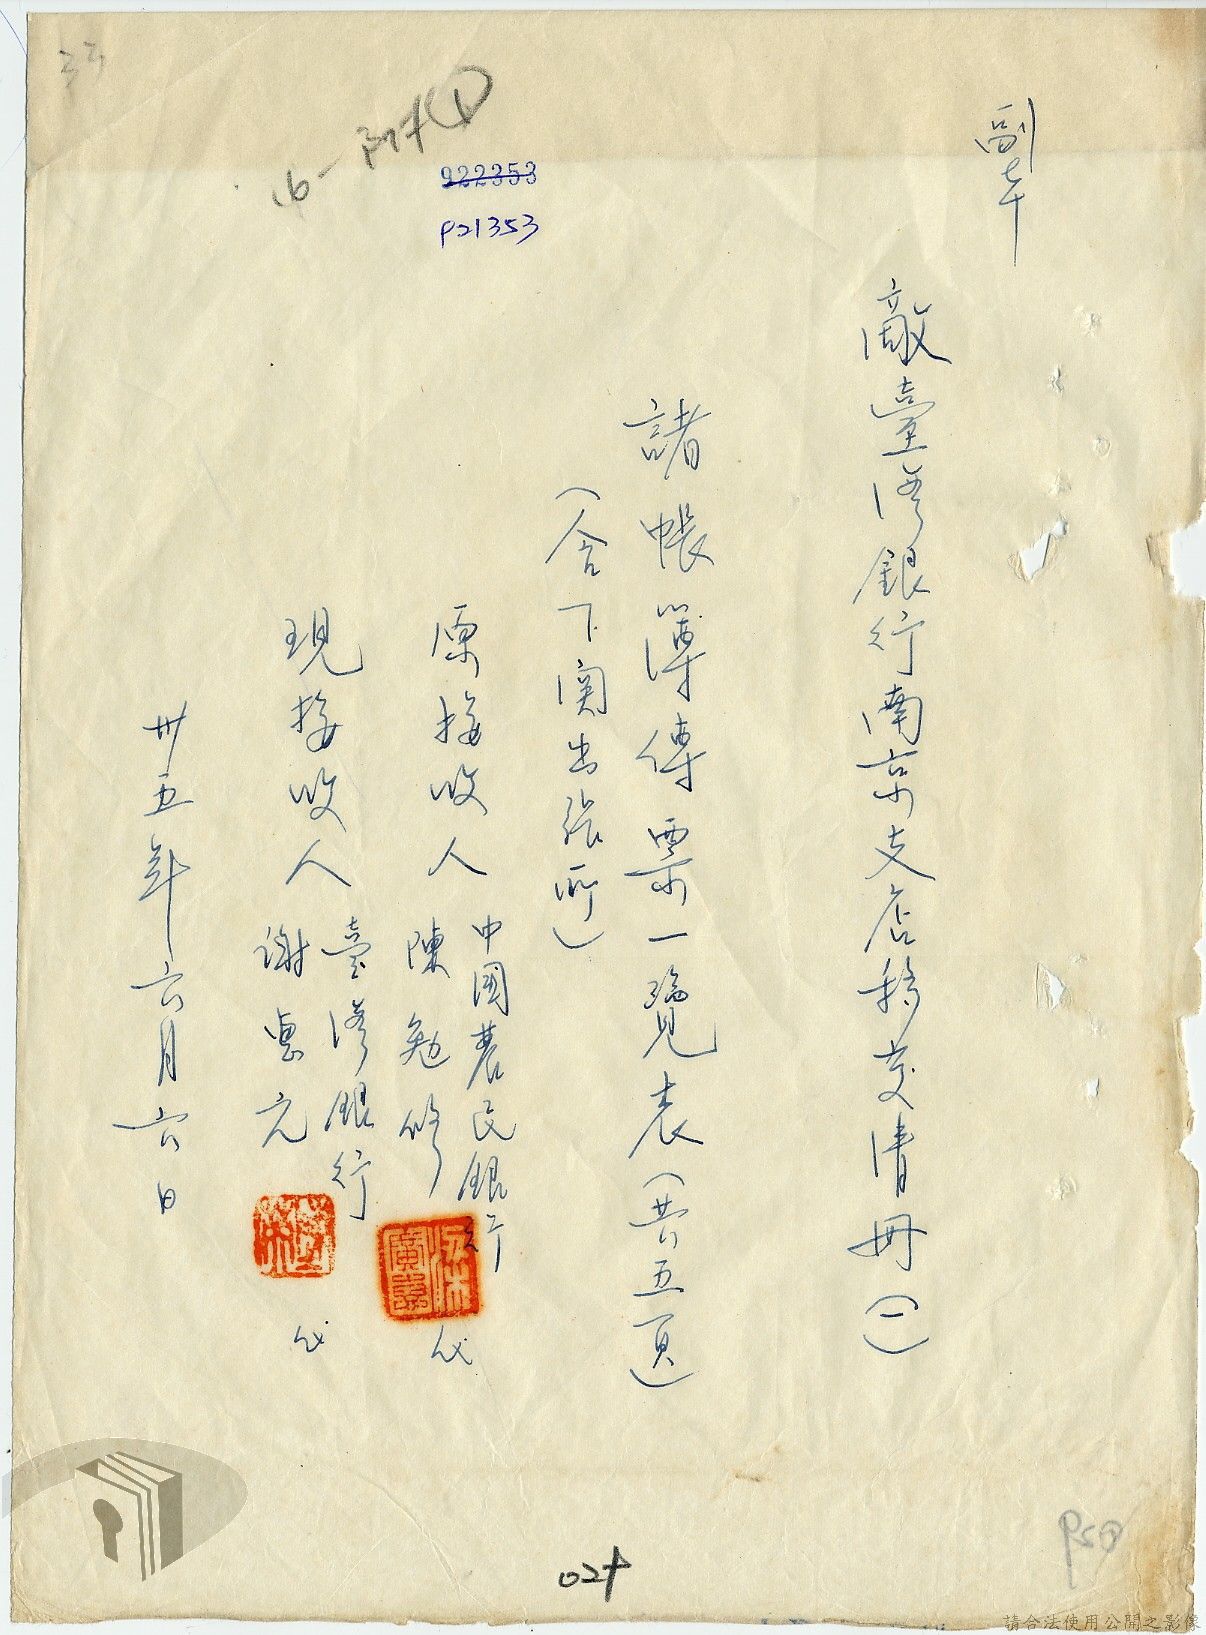 副本
敵臺湾銀行南京支店移交清冊(一)
諸帳簿傳票一覽表(共五頁)
(含下関出張所)
原接收人 中國農民銀行
陳勉修 代
現接收人 臺湾銀行
謝 元 代
卅五年六月六日
922353
P21353
024
請合法使用公開之影像